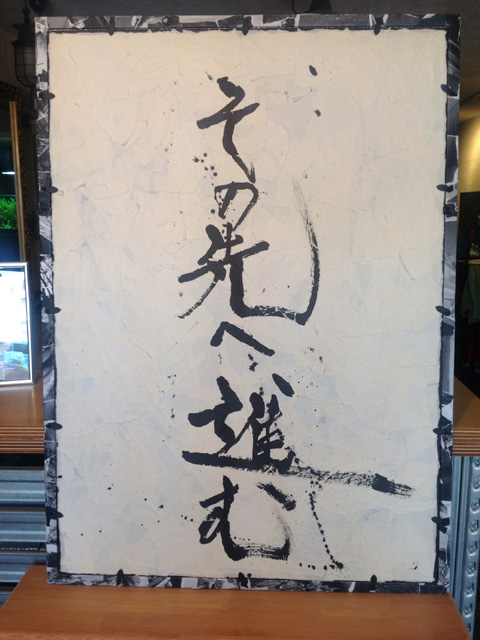 その先へ進む